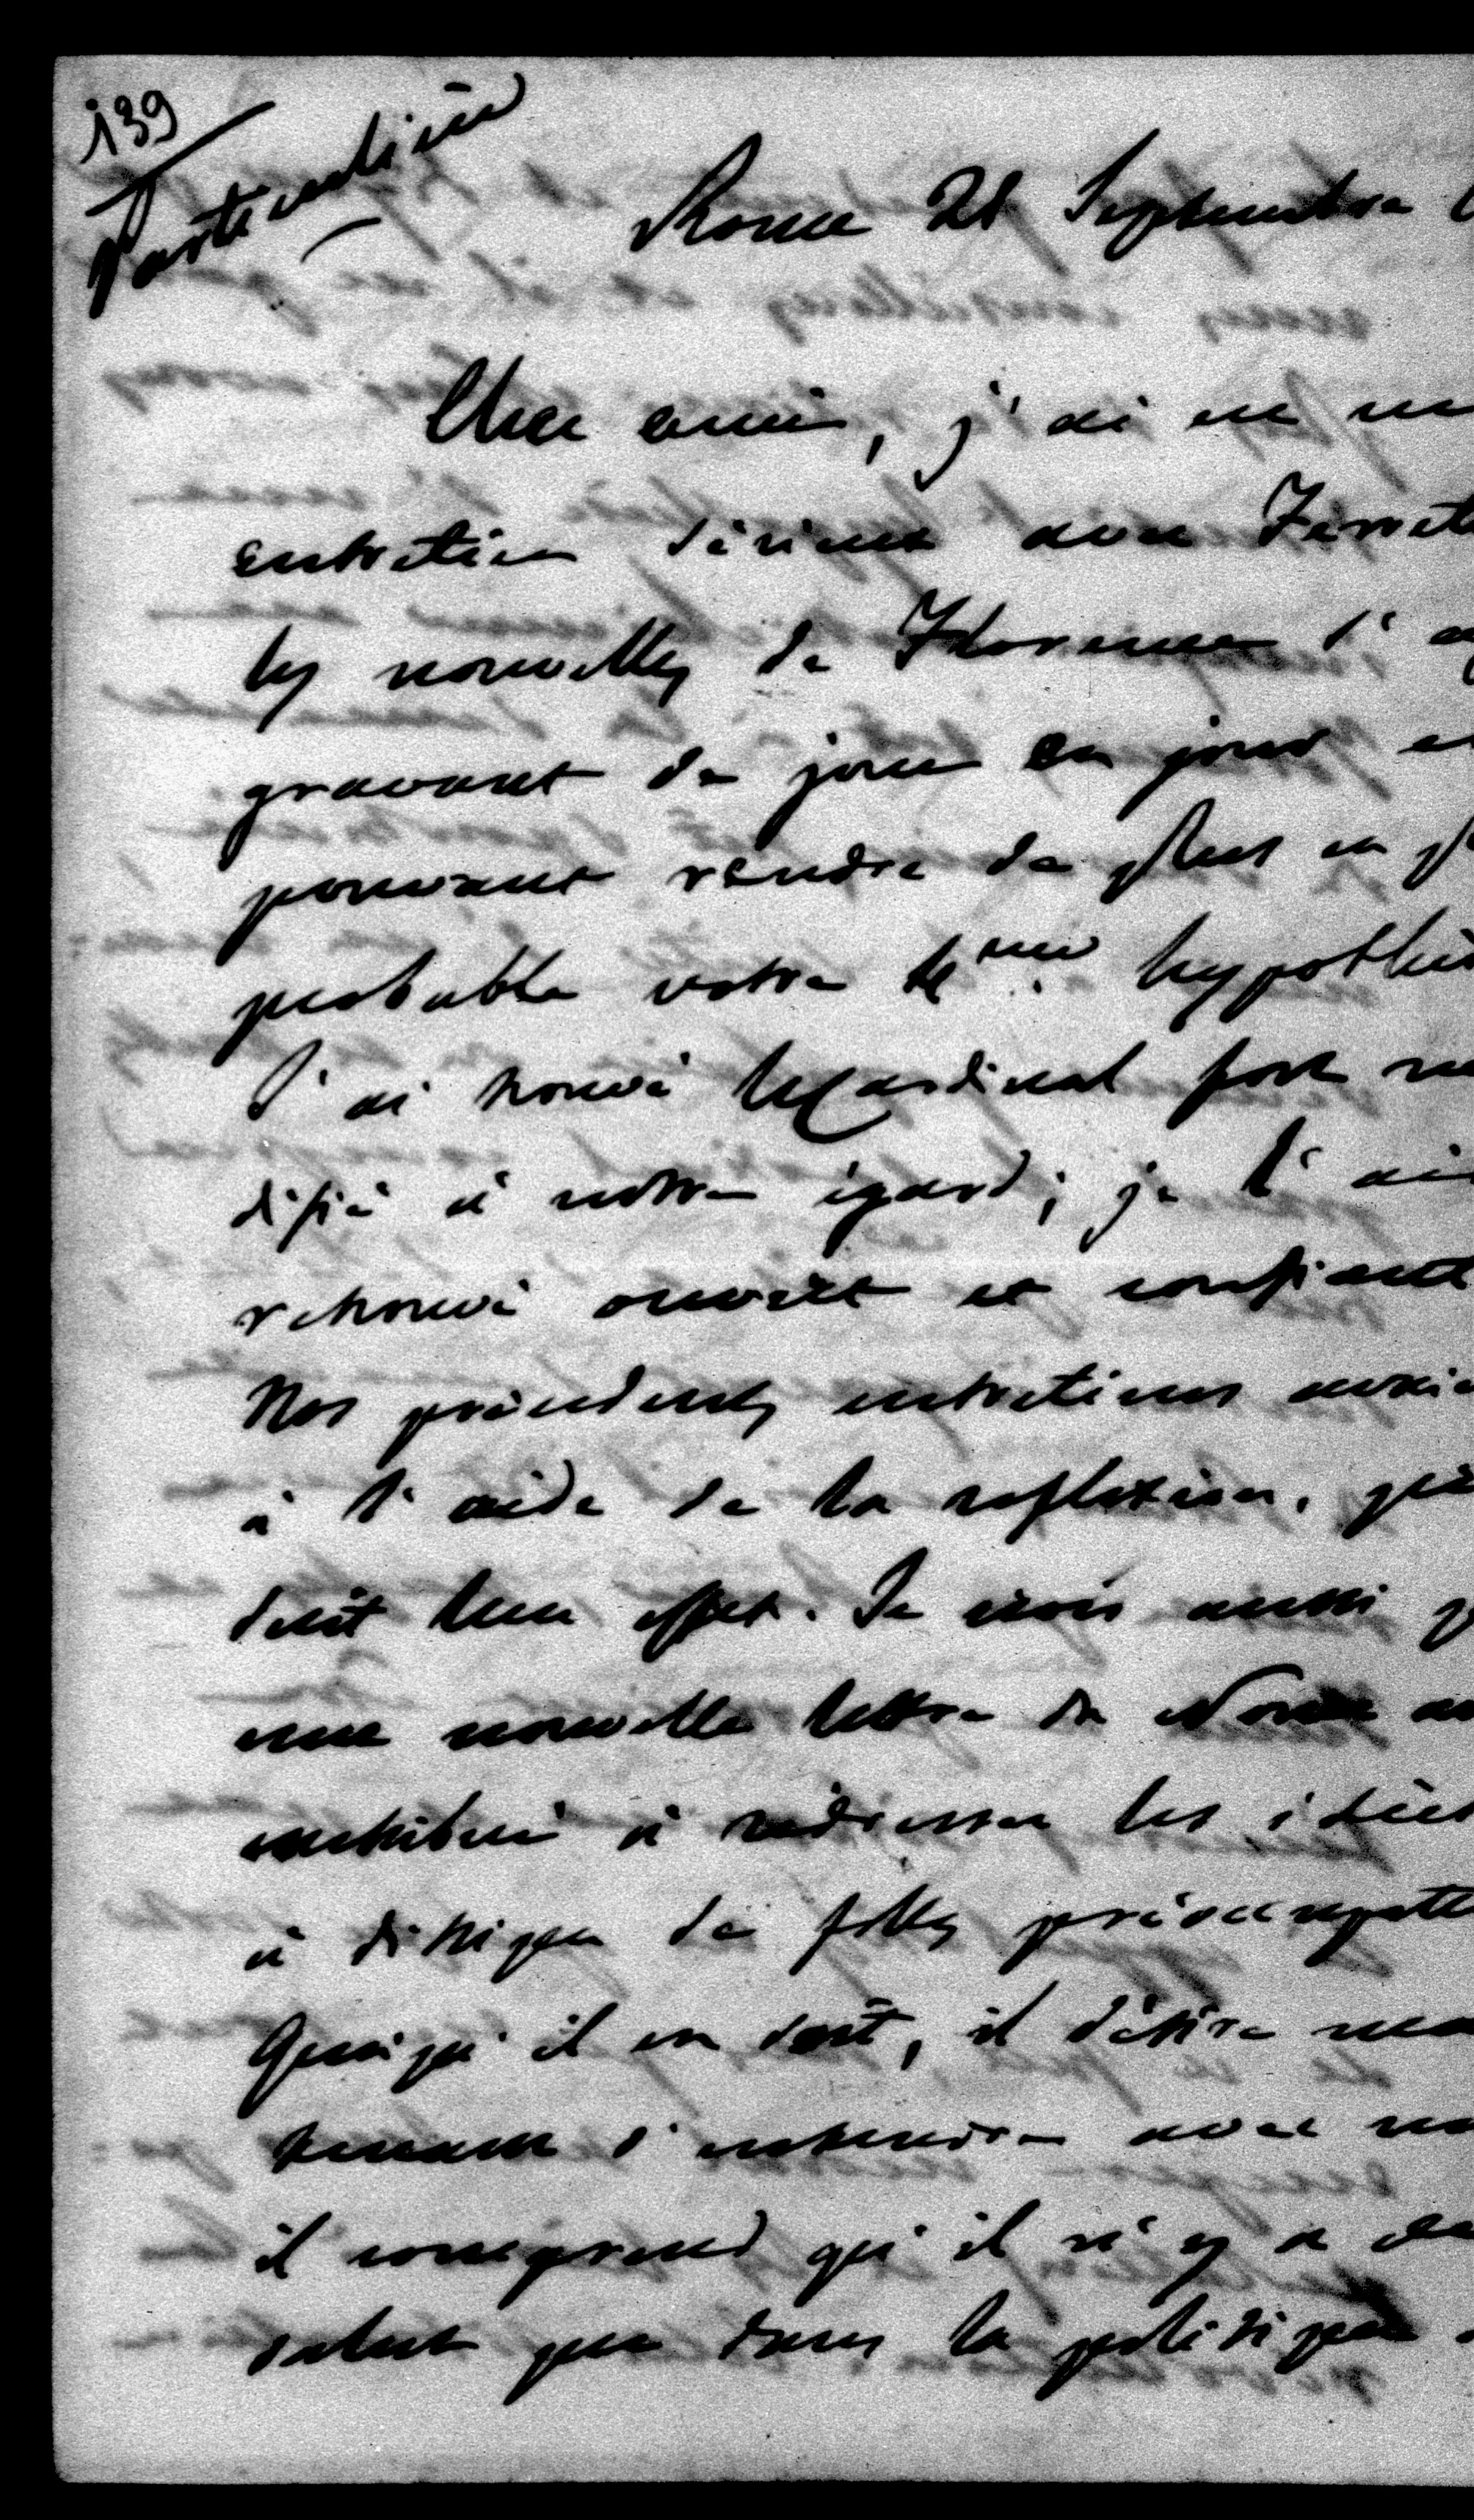 139
Particulière
Rome 21 Septembre
Cher ami, j'ai eu un
entretien sérieux avec Ferret
les nouvelles de Florence s'ag
gravant de jour en jour et
pouvant rendre de plus en pl
probable votre hypothès
J'ai trouvé le Cardinal fort mo
difié à notre égard; je l'ai
retrouvé ouvert et confiant
Nos précédents entretiens avaie
à l'aide de la reflexion, pro
duit leur effet. Je crois aussi q
une nouvelle lettre du Nonce au
contribué à redresser les idées
à dissiper de folles préoccupati
Quoiqu'il en soit, il désire main
tenant s'entendre avec no
il comprend qu'il n'y a de
salut que dans la politique